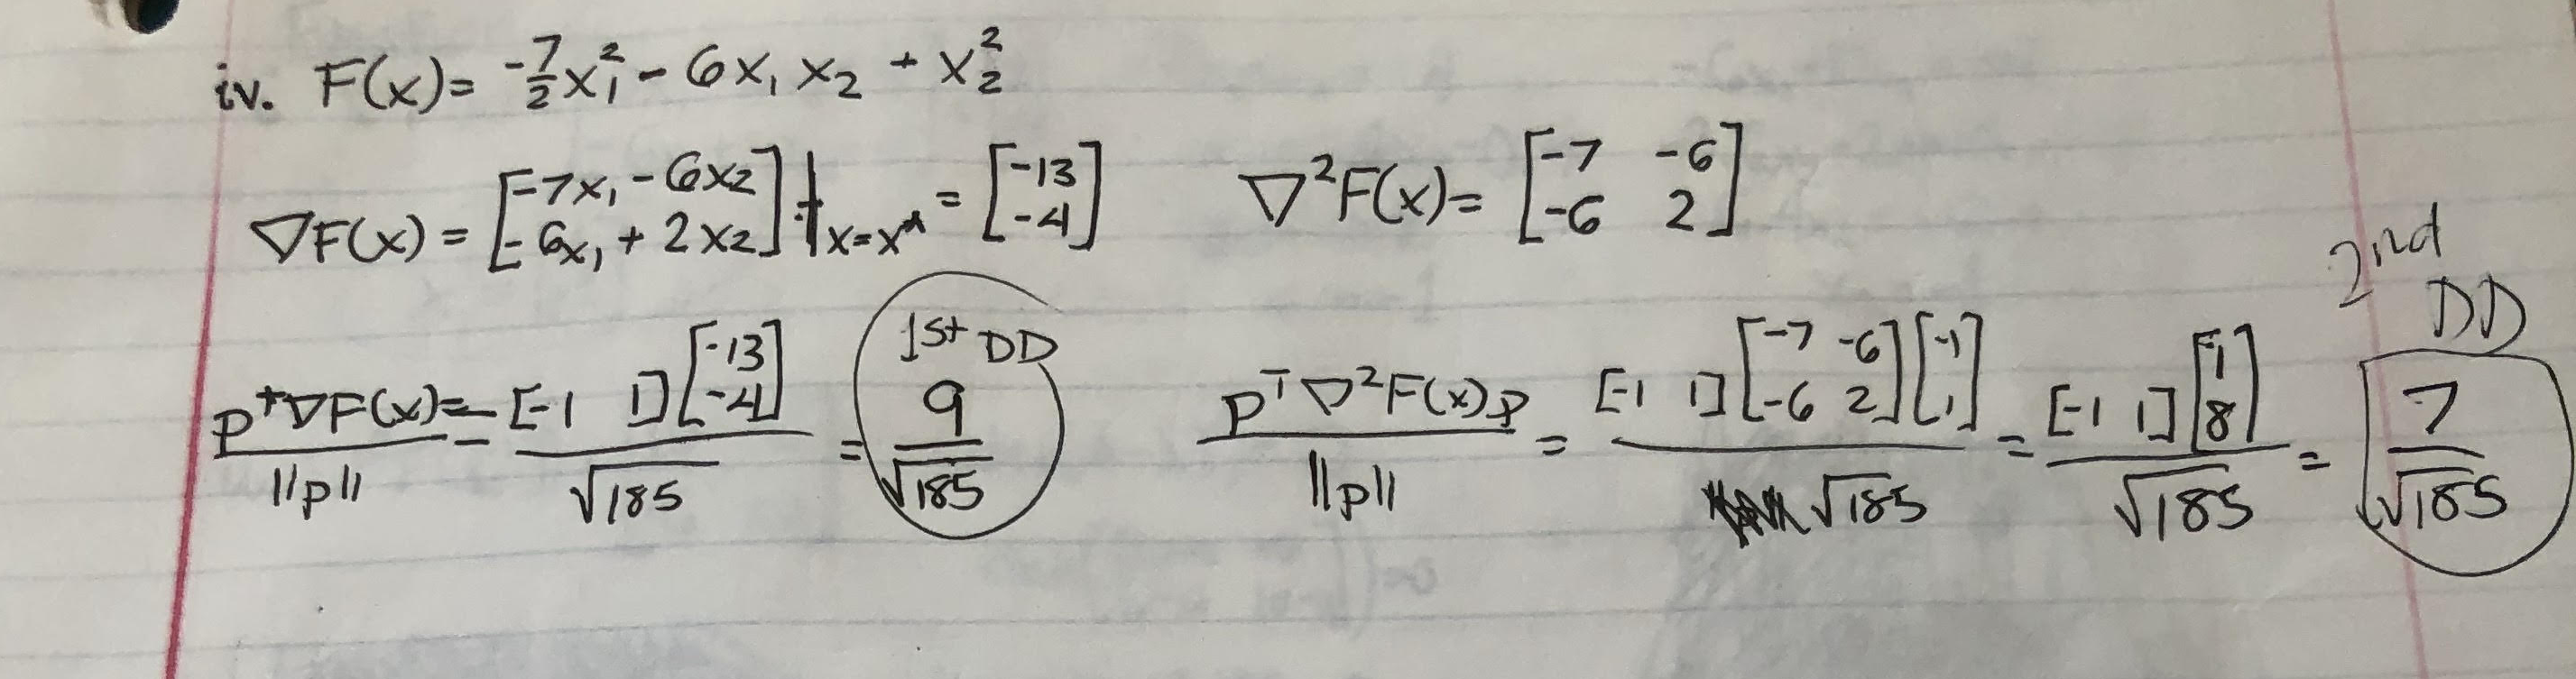 iv. F(x)= -7/2 x₁² - 6x₁ x₂ + x₂²
∇F(x) = [-7x₁ - 6x₂; -6x₁ + 2x₂] |x=x* = [-13; -4]   ∇²F(x)= [-7 -6; -6 2]
p^T∇F(x)/||p|| = [-1 1][-13; -4]/√185 = 1st DD 9/√185   p^T ∇²F(x)p/||p|| = [-1 1][-7 -6; -6 2][-1; 1]/√185 = [-1 1][1; 8]/√185 = 2nd DD 7/√185